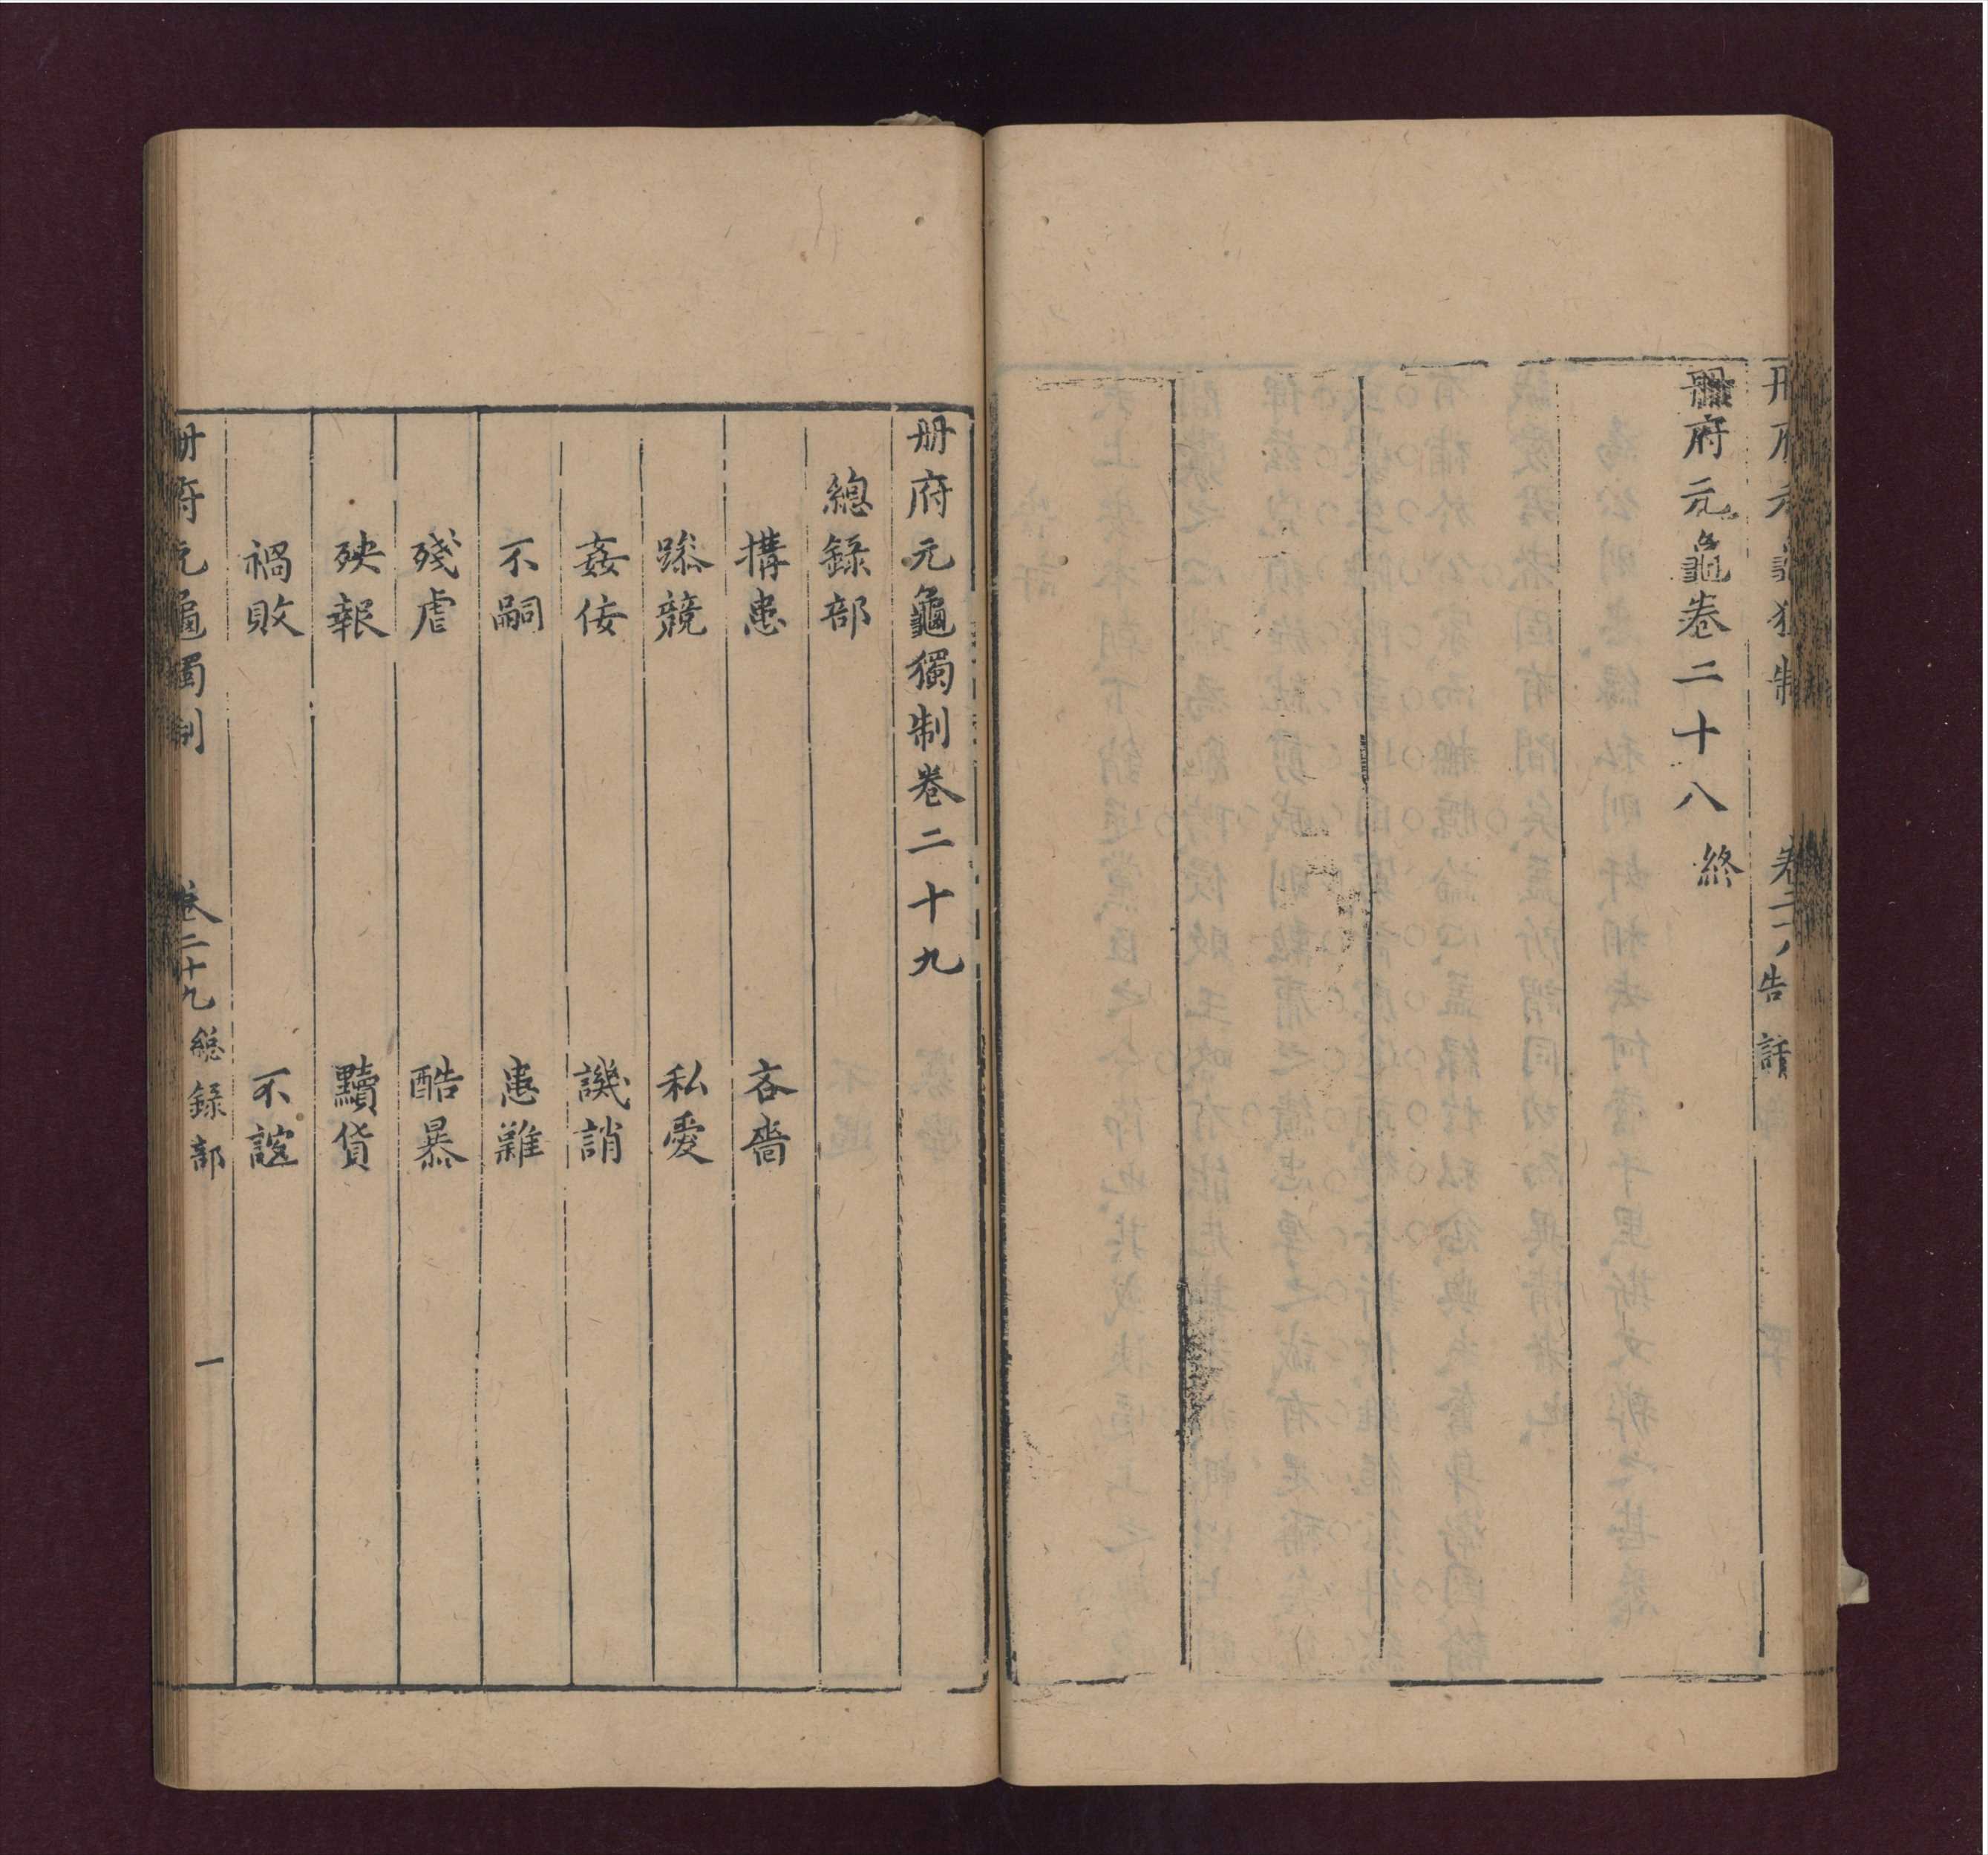 冊府元龜獨制　卷二　告諭
冊府元龜卷二十八終
冊府元龜獨制卷二十九
總錄部
搆患　吝嗇
躁競　私愛
姦佞　譏誚
不嗣　患難
殘虐　酷暴
殃報　黷貨
禍敗　不誼
冊府元龜獨制　卷二十九　總錄部　一